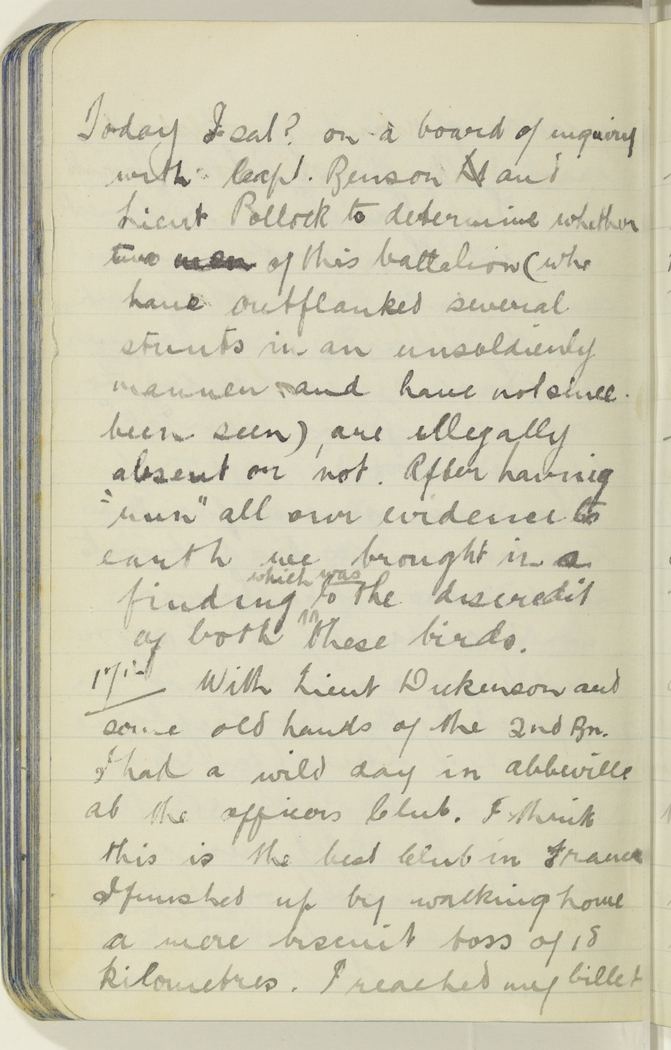 Today I sat? on a board of inquiry
with Capt. Benson and
Lieut Pollock to determine whether
two men of this battalion (who
have outflanked several
stunts in an unsoldierly
manner and have not since
been seen), are illegally
absent or not. After having
"run" all our evidence to
earth we brought in a
which was
finding to the discredit
of both these birds.
17th With Lieut Dickenson and
some old hands of the 2nd Bn.
I had a wild day in abbeville
at the officers Club. I think
this is the best Club in France
I finished up by walking home
a mere biscuit toss of 18
kilometres. I reached my billet